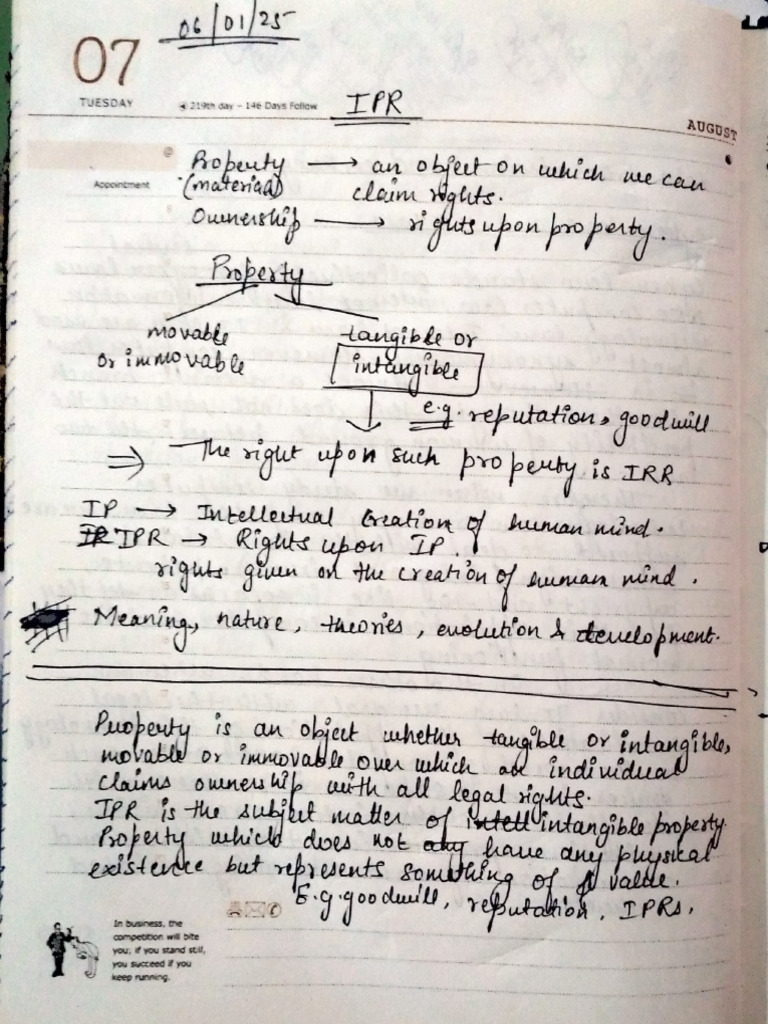 06/01/25
07
TUESDAY
219th day - 146 Days Follow
IPR
AUGUST
Appointment
Property → an object on which we can
(material) claim rights.
Ownership → rights upon property.
Property
movable tangible or
or immovable intangible
e.g. reputation, goodwill
⇒ The right upon such property is IRR
IP → Intellectual Creation of human mind.
IPR → Rights upon IP.
rights given on the creation of human mind.
Meaning, nature, theories, evolution & development.
Property is an object whether tangible or intangible,
movable or immovable over which an individual
claims ownership with all legal rights.
IPR is the subject matter of intell intangible property.
Property which does not any have any physical
existence but represents something of value.
E.g. goodwill, reputation, IPRs.
In business, the
competition will bite
you; if you stand still,
you succeed if you
keep running.